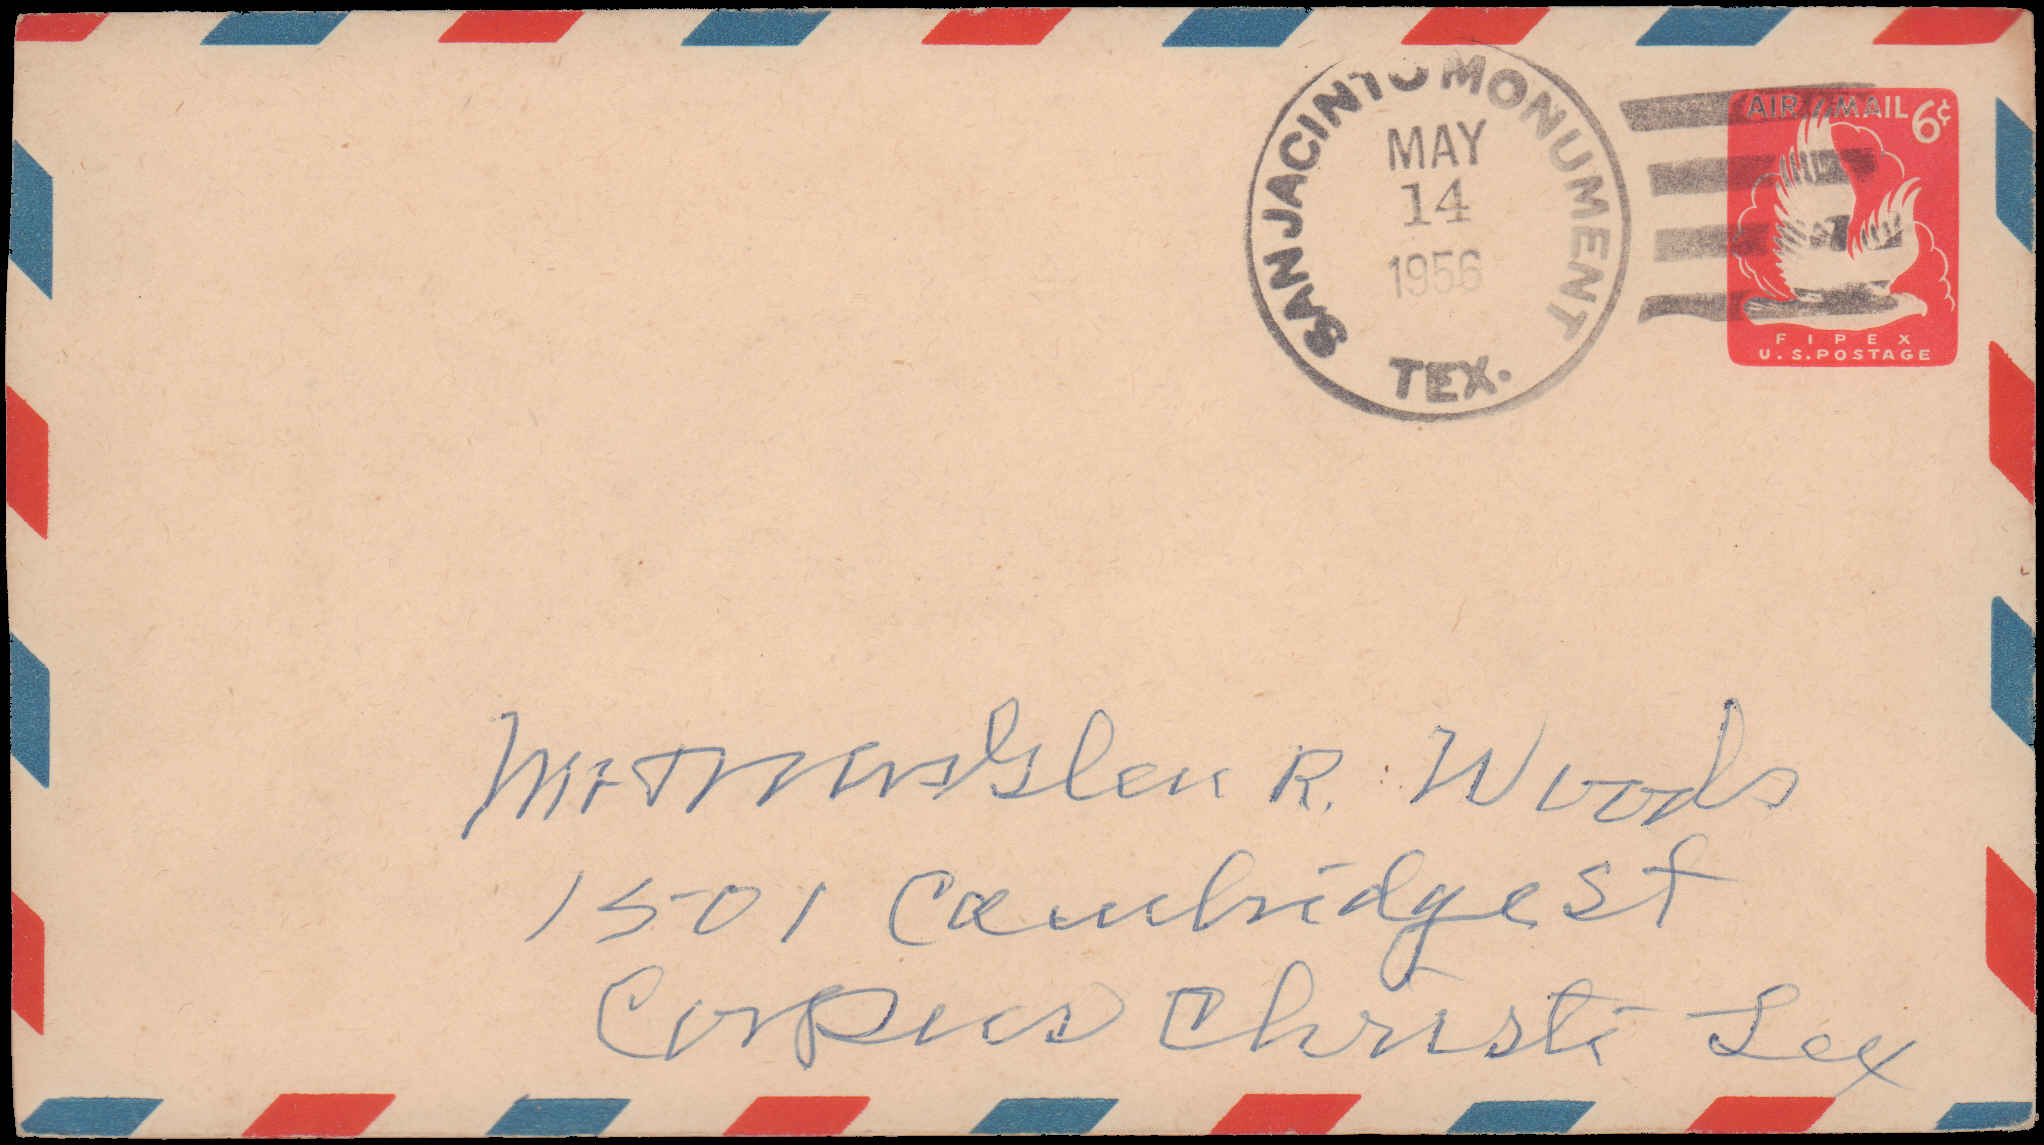 SAN JACINTO MONUMENT
MAY
14
1956
TEX.
AIR MAIL 6¢
FIPEX
U.S. POSTAGE
Mr & Mrs Glen R. Woods
1501 Cambridge St
Corpus Christi Tex